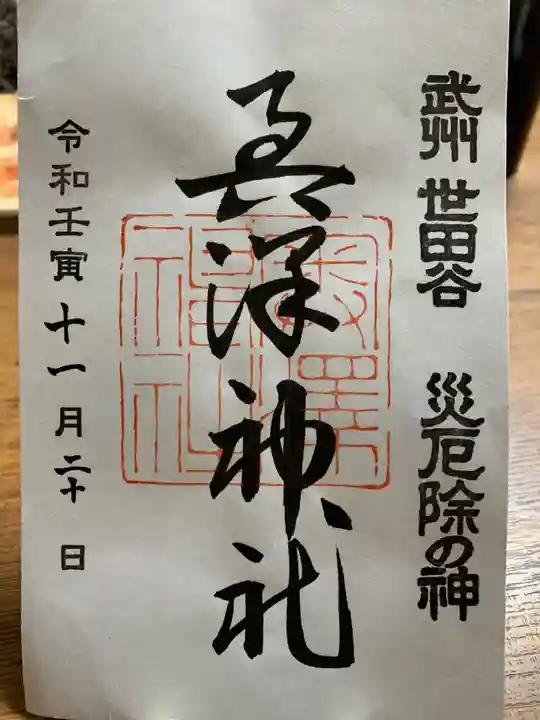 武州 世田谷 災厄除の神
奥澤神社
令和壬寅十一月二十日